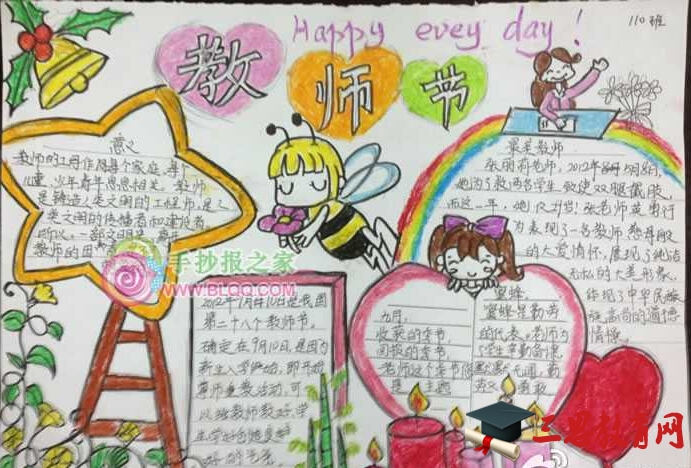 Happy evey day!
110班
教师节
意义
教师的工作和每个家庭、每个
儿童、少年青年息息相关。教师
是铸造人类文明的工程师,是人
类文明的传播者和建设者
所以,一部文明史
教师的
最美教师
张丽莉老师,2012年5月8日,
她为了救两名学生,致使双腿截肢,
而这一年,她
张老师英勇行
为表现了一名教师
的大爱情怀,展现了
无私的大美形象。
体现了中华民族
崇高的道德
情操。
手抄报之家
WWW.BLQQ.COM
2012年9月10日是我国
第二十八个教师节。
确定在9月10日,是因为
新生入学
即开始
尊师重教活动,可
以给教师教好,学
生学好创造良
好的气氛
九月,
收获的季节,
回报的季节,
老师这个季节的
主题
蜜蜂
蜜蜂是勤劳
的代表。老师为
了学生辛勤
默默无闻,勤